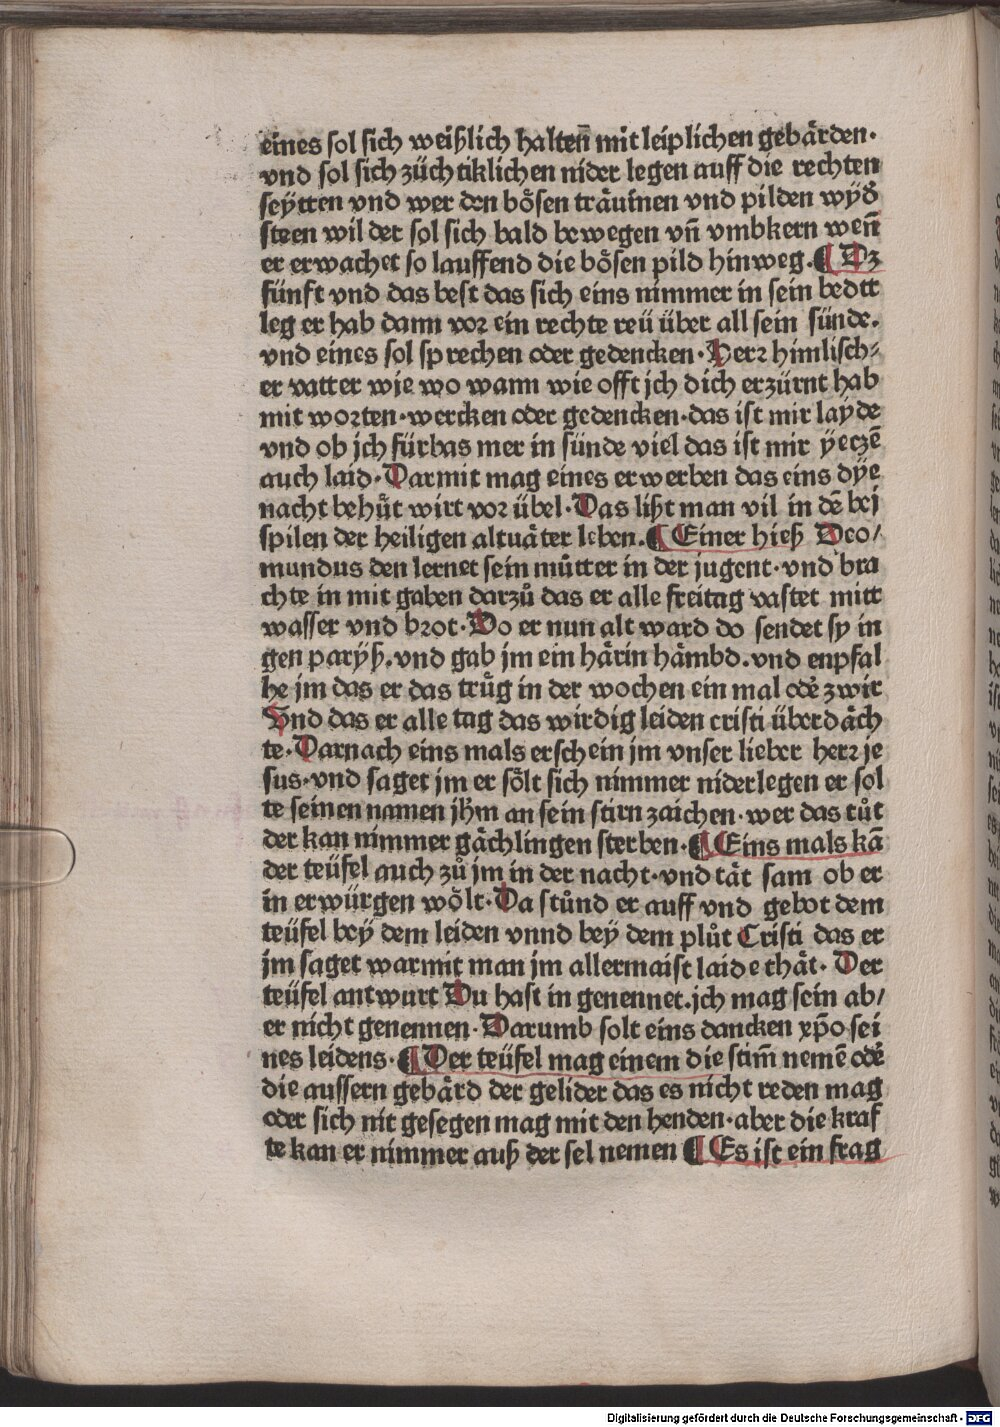 eines sol sich weißlich halten̄ mit leiplichen gebärden·
vnd sol sich züchtiklichen nider legen auff die rechten
seÿtten vnd wer den bösen träumen vnd pilden wÿd̕
steen wil der sol sich bald bewegen vn̄ vmbkern wen̄
er erwachet so lauffend die bösen pild hinweg. ¶ Dz
fünft vnd das best das sich eins nimmer in sein bedtt
leg er hab dann vor ein rechte reü über all sein sünde.
vnd eines sol sprechen oder gedencken· Herr himlisch⸗
er vatter wie wo wann wie offt jch dich erzürnt hab
mit worten·wercken oder gedencken·das ist mir layde
vnd ob jch fürbas mer in sünde viel das ist mir ÿeczē
auch laid· Darmit mag eines erwerben das eins dÿe
nacht behuͤt wirt vor übel· Das lißt man vil in dē bei
spilen der heiligen altuäter leben. ¶ Einer hieß Deo/
mundus den lernet sein muͤtter in der jugent·vnd bra
chte in mit gaben darzuͦ das er alle freitag vastet mitt
wasser vnd brot· Do er nun alt ward do sendet sy in
gen parÿß.vnd gab jm ein härin hämbd.vnd enpfal
he jm das er das truͤg in der wochen ein mal odē zwir
Vnd das er alle tag das wirdig leiden cristi überdäch
te· Darnach eins mals erschein jm vnser lieber herr je
sus·vnd saget jm er sölt sich nimmer niderlegen er sol
te seinen namen jhm̄ an sein stirn zaichen·wer das tuͦt
der kan nimmer gächlingen sterben· ¶ Eins mals kā
der teüfel auch zuͦ jm in der nacht·vnd tät sam ob er
in erwürgen wölt· Da stuͦnd er auff vnd gebot dem
teüfel beÿ dem leiden vnnd beÿ dem pluͦt Cristi das er
jm saget warmit man jm allermaist laide thät· Der
teüfel antwurt Du hast in genennet.jch mag sein ab/
er nicht genennen· Darumb solt eins dancken xp̄o sei
nes leidens· ¶ Der teüfel mag einem die stim̄ nemē odē
die aussern gebärd der gelider das es nicht reden mag
oder sich nit gesegen mag mit den henden·aber die kraf
te kan er nimmer auß der sel nemen ¶ Es ist ein frag
Digitalisierung gefördert durch die Deutsche Forschungsgemeinschaft - DFG